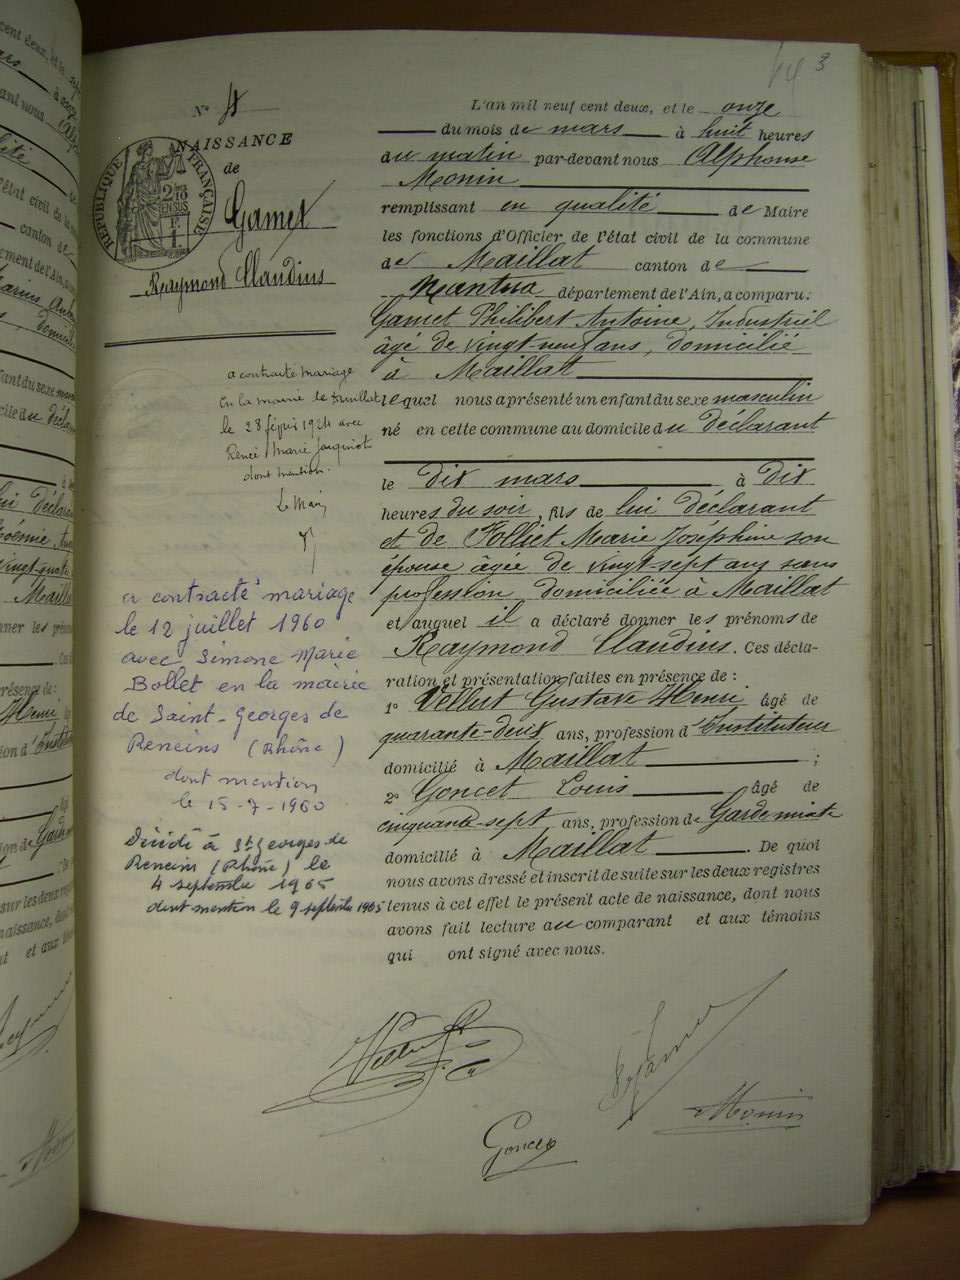 3
N° 4
NAISSANCE
de
RÉPUBLIQUE FRANÇAISE
Gamet
Raymond Claudius
a contracté mariage
en la mairie de
le 28 1924 avec
Renée Marie Jacquinot
dont mention.
Le Maire
a contracté mariage
le 12 juillet 1960
avec Simone Marie
Bollet en la mairie
de Saint-Georges de
Reneins (Rhône)
dont mention
le 15-7-1960
Décédé à St Georges de
Reneins (Rhône) le
4 septembre 1965
dont mention le 9 septembre 1965
L'an mil neuf cent deux, et le onze
du mois de mars à huit heures
du matin par-devant nous Alphonse
Monin
remplissant en qualité de Maire
les fonctions d'Officier de l'état civil de la commune
de Maillat canton de
Nantua département de l'Ain, a comparu:
Gamet Philibert Antoine, Industriel
âgé de vingt-neuf ans, domicilié
à Maillat
lequel nous a présenté un enfant du sexe masculin
né en cette commune au domicile du déclarant
le dix mars à dix
heures du soir, fils de lui déclarant
et de Folliet Marie Joséphine son
épouse âgée de vingt-sept ans sans
profession domiciliée à Maillat
et auquel il a déclaré donner les prénoms de
Raymond Claudius. Ces décla-
ration et présentation faites en présence de :
1° Vellut Gustave Henri âgé de
quarante-deux ans, profession d'Instituteur
domicilié à Maillat ;
2° Goncet Louis âgé de
cinquante-sept ans, profession de Garde
domicilié à Maillat. De quoi
nous avons dressé et inscrit de suite sur les deux registres
tenus à cet effet le présent acte de naissance, dont nous
avons fait lecture au comparant et aux témoins
qui ont signé avec nous.
Vellut
Gamet
Monin
Goncet